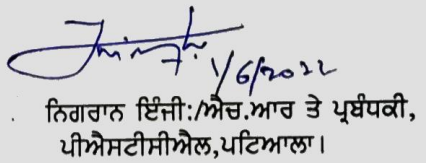 1/6/2022
ਨਿਗਰਾਨ ਇੰਜੀ:/ਐਚ.ਆਰ ਤੇ ਪ੍ਰਬੰਧਕੀ,
ਪੀਐਸਟੀਸੀਐਲ,ਪਟਿਆਲਾ।